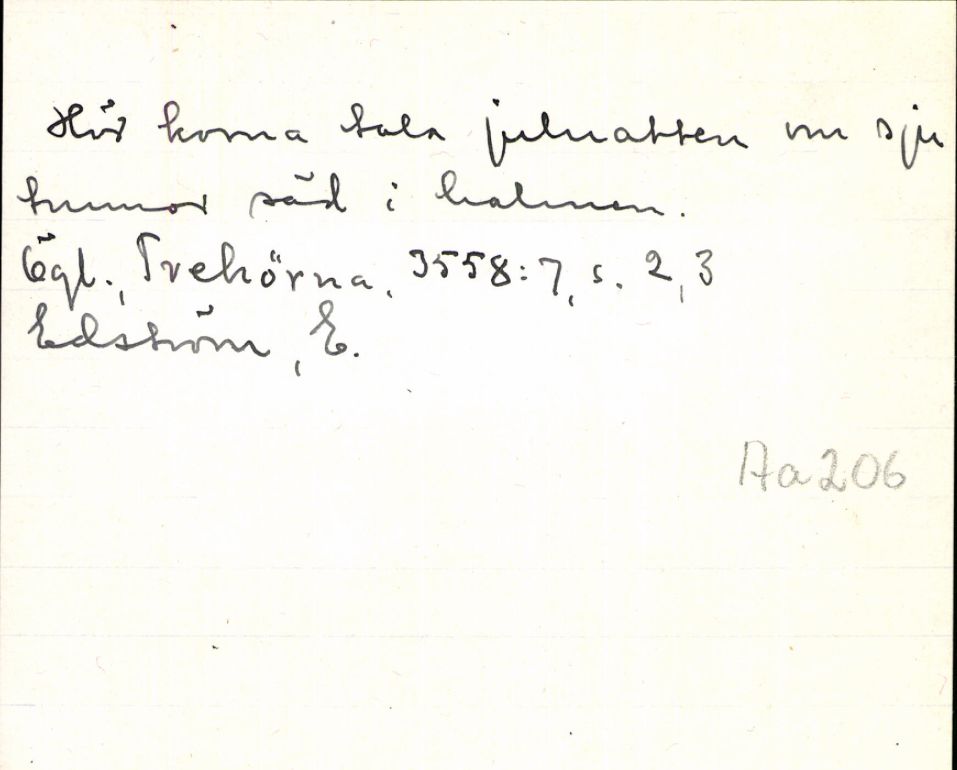 Hör korna tala julnatten om sju
tunnor säd i halmen.
Ögl., Trehörna, 3558:7, s. 2, 3
Edström, E.
Aa206